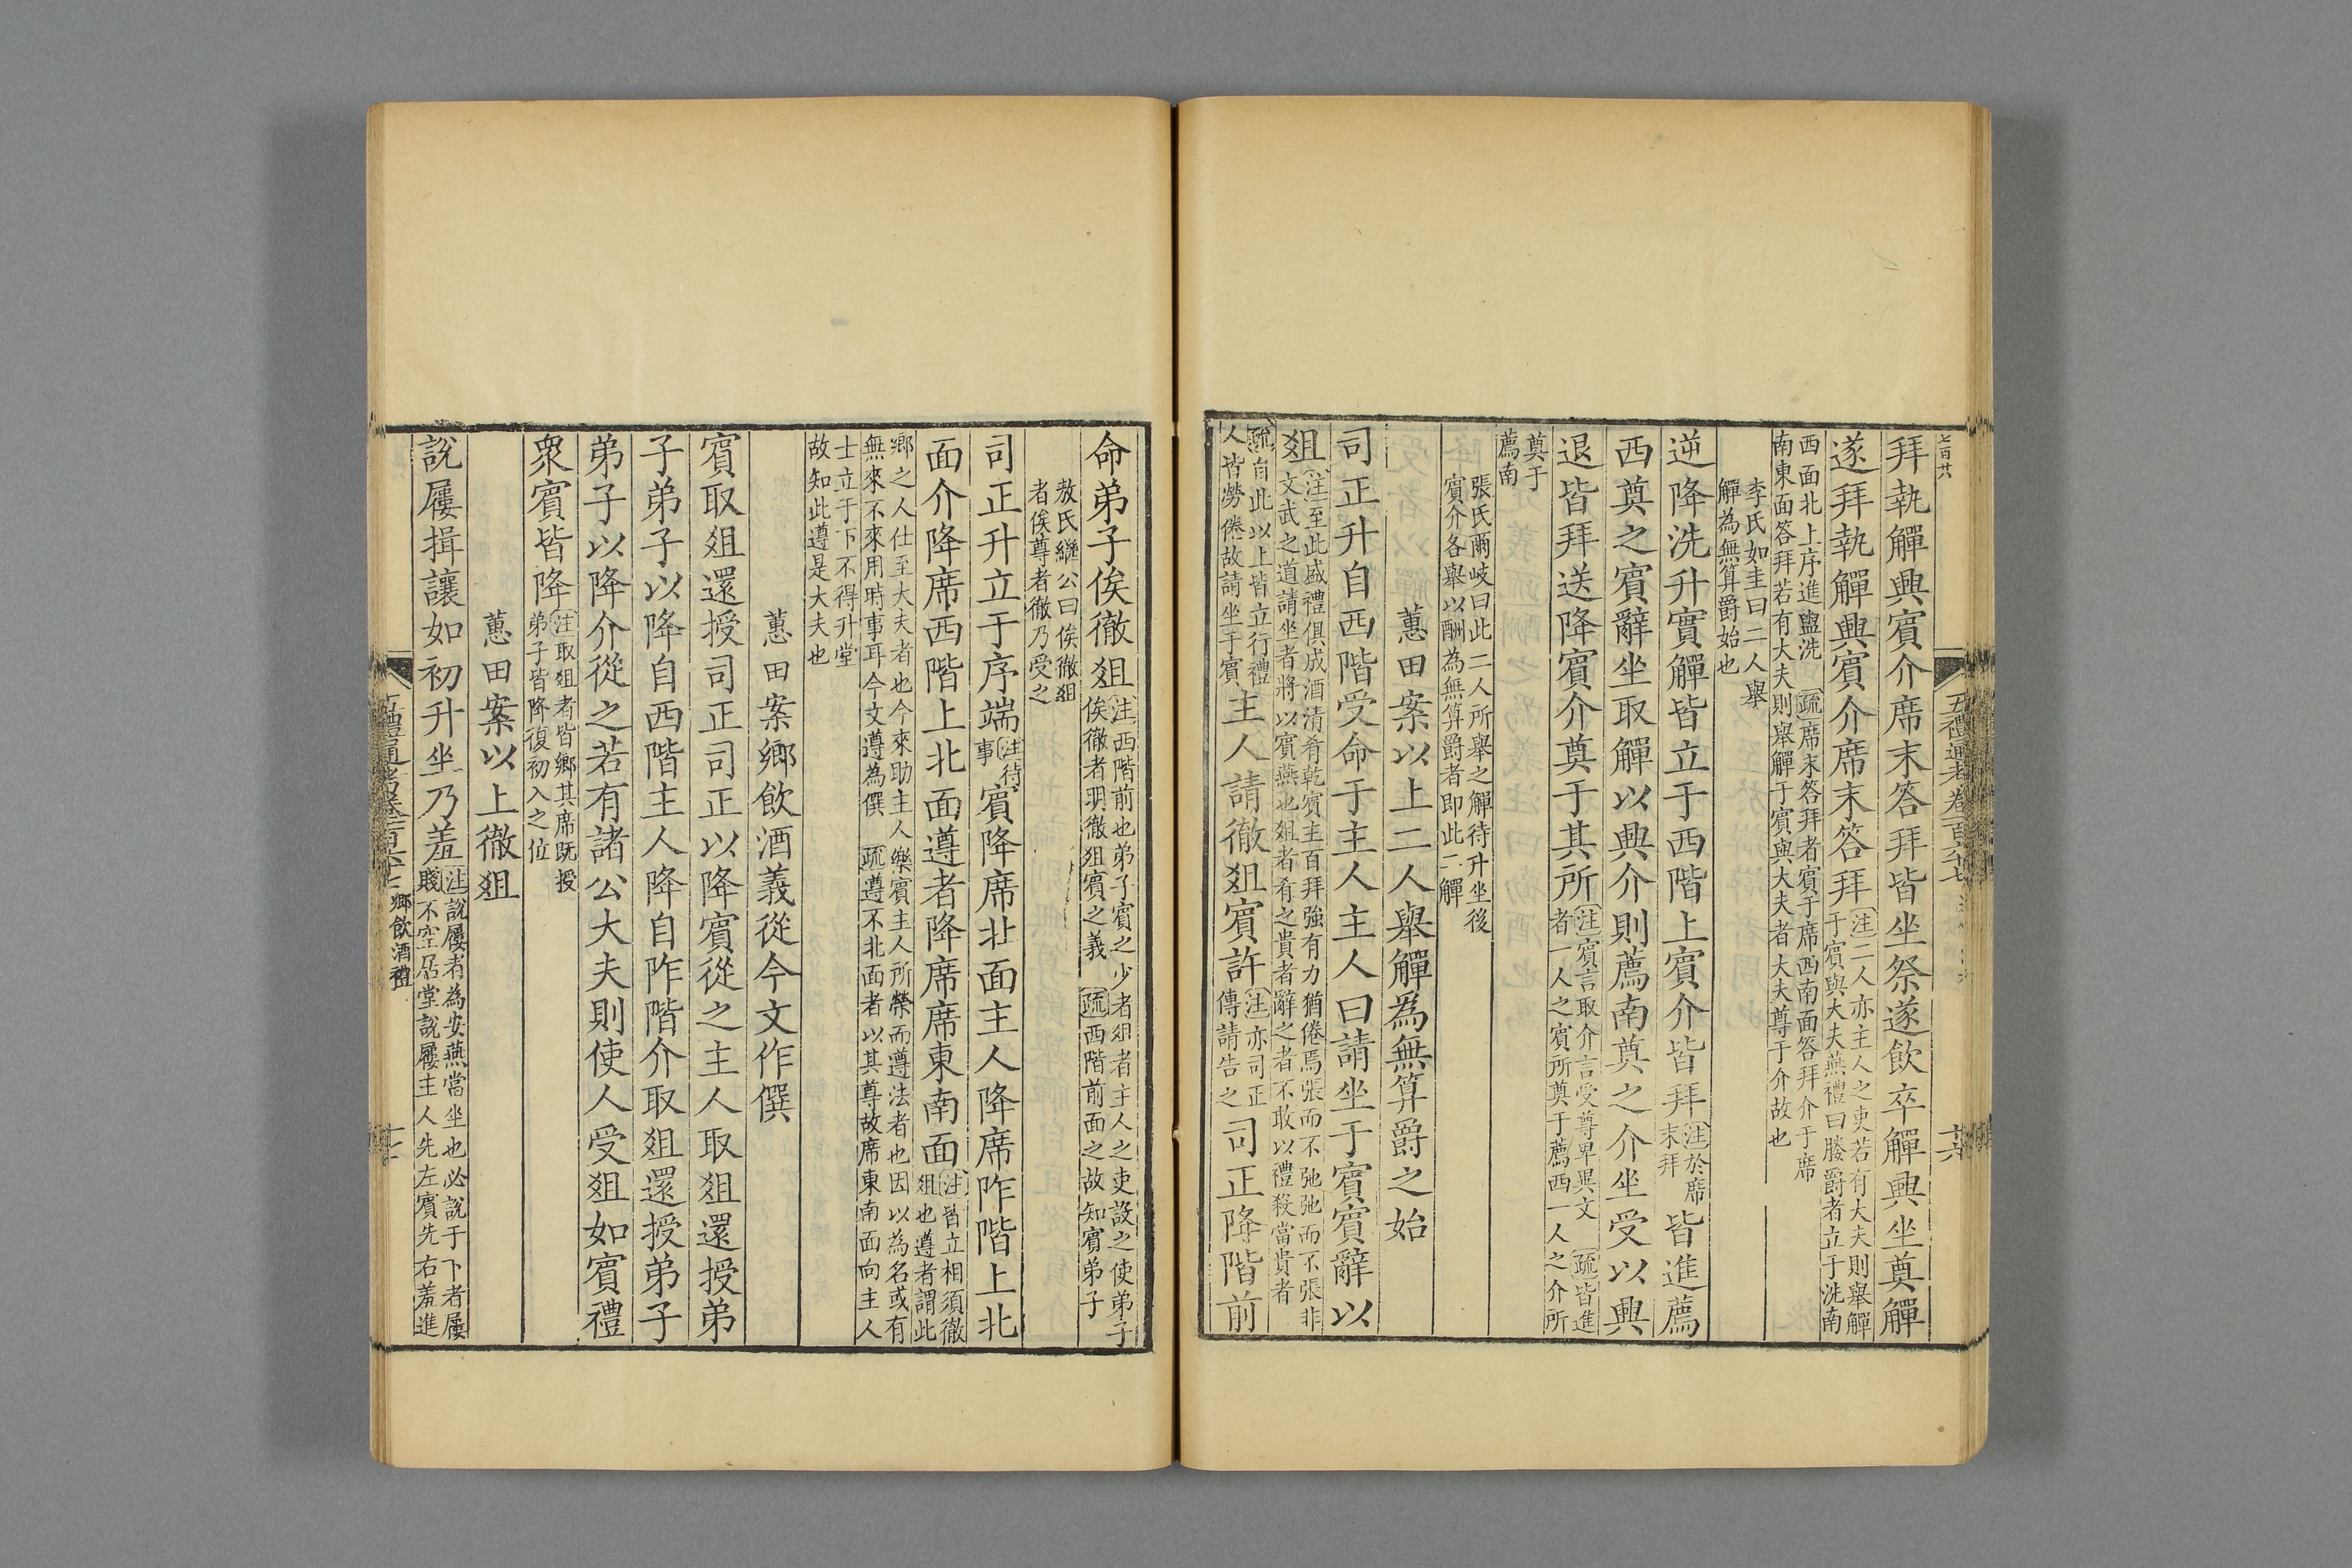 七百廿
拜執觶興賓介席末答拜皆坐祭遂飲卒觶興坐奠觶
遂拜執觶興賓介席末答拜
注二人亦主人之吏若有大夫則舉觶
于賓與大夫燕禮曰媵爵者立于洗南
西面北上序進盥洗
疏席末答拜者賓于席西南面答拜介于席
南東面答拜若有大夫則舉觶于賓與大夫者大夫尊于介故也
李氏如圭曰二人舉
觶為無算爵始也
逆降洗升實觶皆立于西階上賓介皆拜
注於席
末拜
皆進薦
西奠之賓辭坐取觶以興介則薦南奠之介坐受以興
退皆拜送降賓介奠于其所
注賓言取介言受尊卑異文
疏皆進
者一人之賓所奠于薦西一人之介所
奠于
薦南
張氏爾岐曰此二人所舉之觶待升坐後
賓介各舉以酬為無算爵者即此二觶
蕙田案以上二人舉觶為無算爵之始
司正升自西階受命于主人主人曰請坐于賓賓辭以
俎
注至此盛禮俱成酒清肴乾賓主百拜強有力猶倦焉張而不弛弛而不張非
文武之道請坐者將以賓燕也俎者肴之貴者辭之者不敢以禮殺當貴者
疏自此以上皆立行禮
人皆勞倦故請坐于賓
主人請徹俎賓許
注亦司正
傳請告之
司正降階前
命弟子俟徹俎
注西階前也弟子賓之少者俎者主人之吏設之使弟子
俟徹者明徹俎賓之義
疏西階前面之故知賓弟子
敖氏繼公曰俟徹俎
者俟尊者徹乃受之
司正升立于序端
注待
事
賓降席北面主人降席阼階上北
面介降席西階上北面遵者降席席東南面
注皆立相須徹
俎也遵者謂此
鄉之人仕至大夫者也今來助主人樂賓主人所榮而遵法者也因以為名或有
無來不來用時事耳今文遵為僎
疏遵不北面者以其尊故席東南面向主人
士立于下不得升堂
故知此遵是大夫也
蕙田案鄉飲酒義從今文作僎
賓取俎還授司正司正以降賓從之主人取俎還授弟
子弟子以降自西階主人降自阼階介取俎還授弟子
弟子以降介從之若有諸公大夫則使人受俎如賓禮
衆賓皆降
注取俎者皆鄉其席既授
弟子皆降復初入之位
蕙田案以上徹俎
說屨揖讓如初升坐乃羞
注說屨者為安燕當坐也必說于下者屨
賤不空居堂說屨主人先左賓先右羞進
鄉飲酒禮